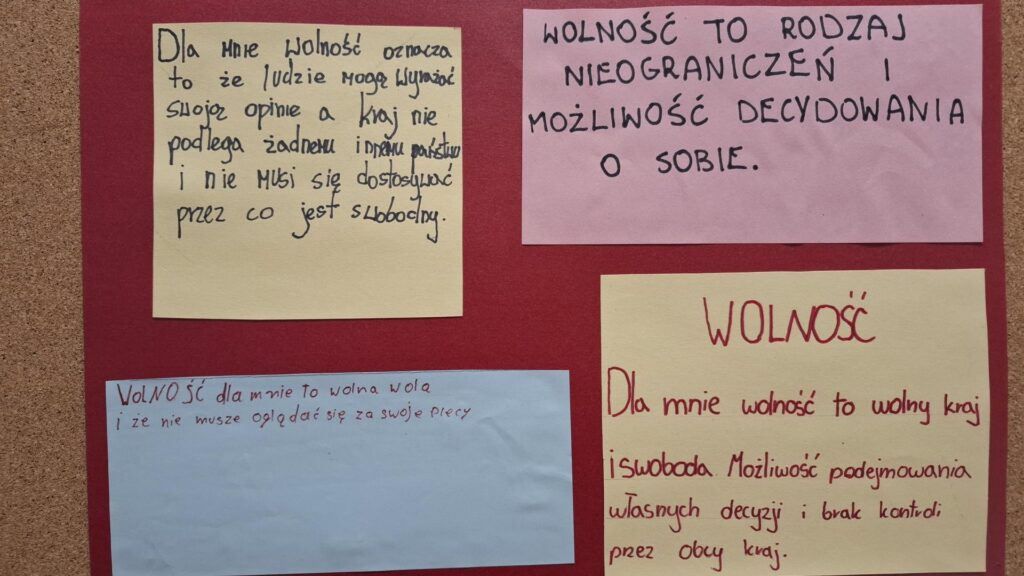 Dla mnie wolność oznacza
to że ludzie mogą wyrażać
swoją opinie a kraj nie
podlega żadnemu innemu państwu
i nie musi się dostosywać
przez co jest swobodny.
WOLNOŚĆ TO RODZAJ
NIEOGRANICZEŃ I
MOŻLIWOŚĆ DECYDOWANIA
O SOBIE.
WOLNOŚĆ dla mnie to wolna wola
i że nie musze oglądać się za swoje plecy
WOLNOŚĆ
Dla mnie wolność to wolny kraj
i swoboda Możliwość podejmowania
własnych decyzji i brak kontroli
przez obcy kraj.